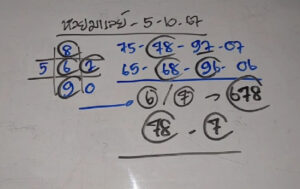 หวยมาเลย์ - 5-10-67
8
5 6 2
9 0
75-78-97-07
65-68-96-06
6/7 → 678
78 - 7